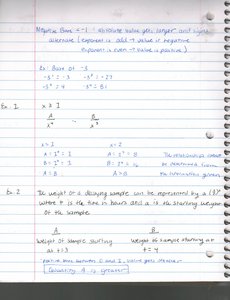 Negative Base < -1 : absolute value gets larger and signs
alternate (exponent is odd → value is negative
exponent is even → value is positive)
Ex: Base of -3
-3¹ = -3 -3³ = -27
-3² = 9 -3⁴ = 81
Ex. 1 x ≥ 1
A B
x = 1 x = 2
The relationship cannot
be determined from
the information given
A = B A > B
Ex. 2 The weight of a decaying sample can be represented by
where t is the time in hours and a is the starting weight
of the sample
A B
Weight of sample starting Weight of sample starting at
at t = 3 t = 4
positive base between 0 and 1, value gets smaller
Quantity A is greater